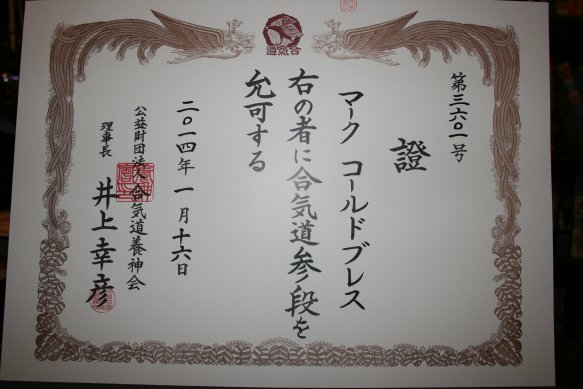 第三六〇一号
證
マーク コールドブレス
右の者に合気道参段を
允可する
二〇一四年一月十六日
公益財団法人合気道養神会
理事長 井上幸彦